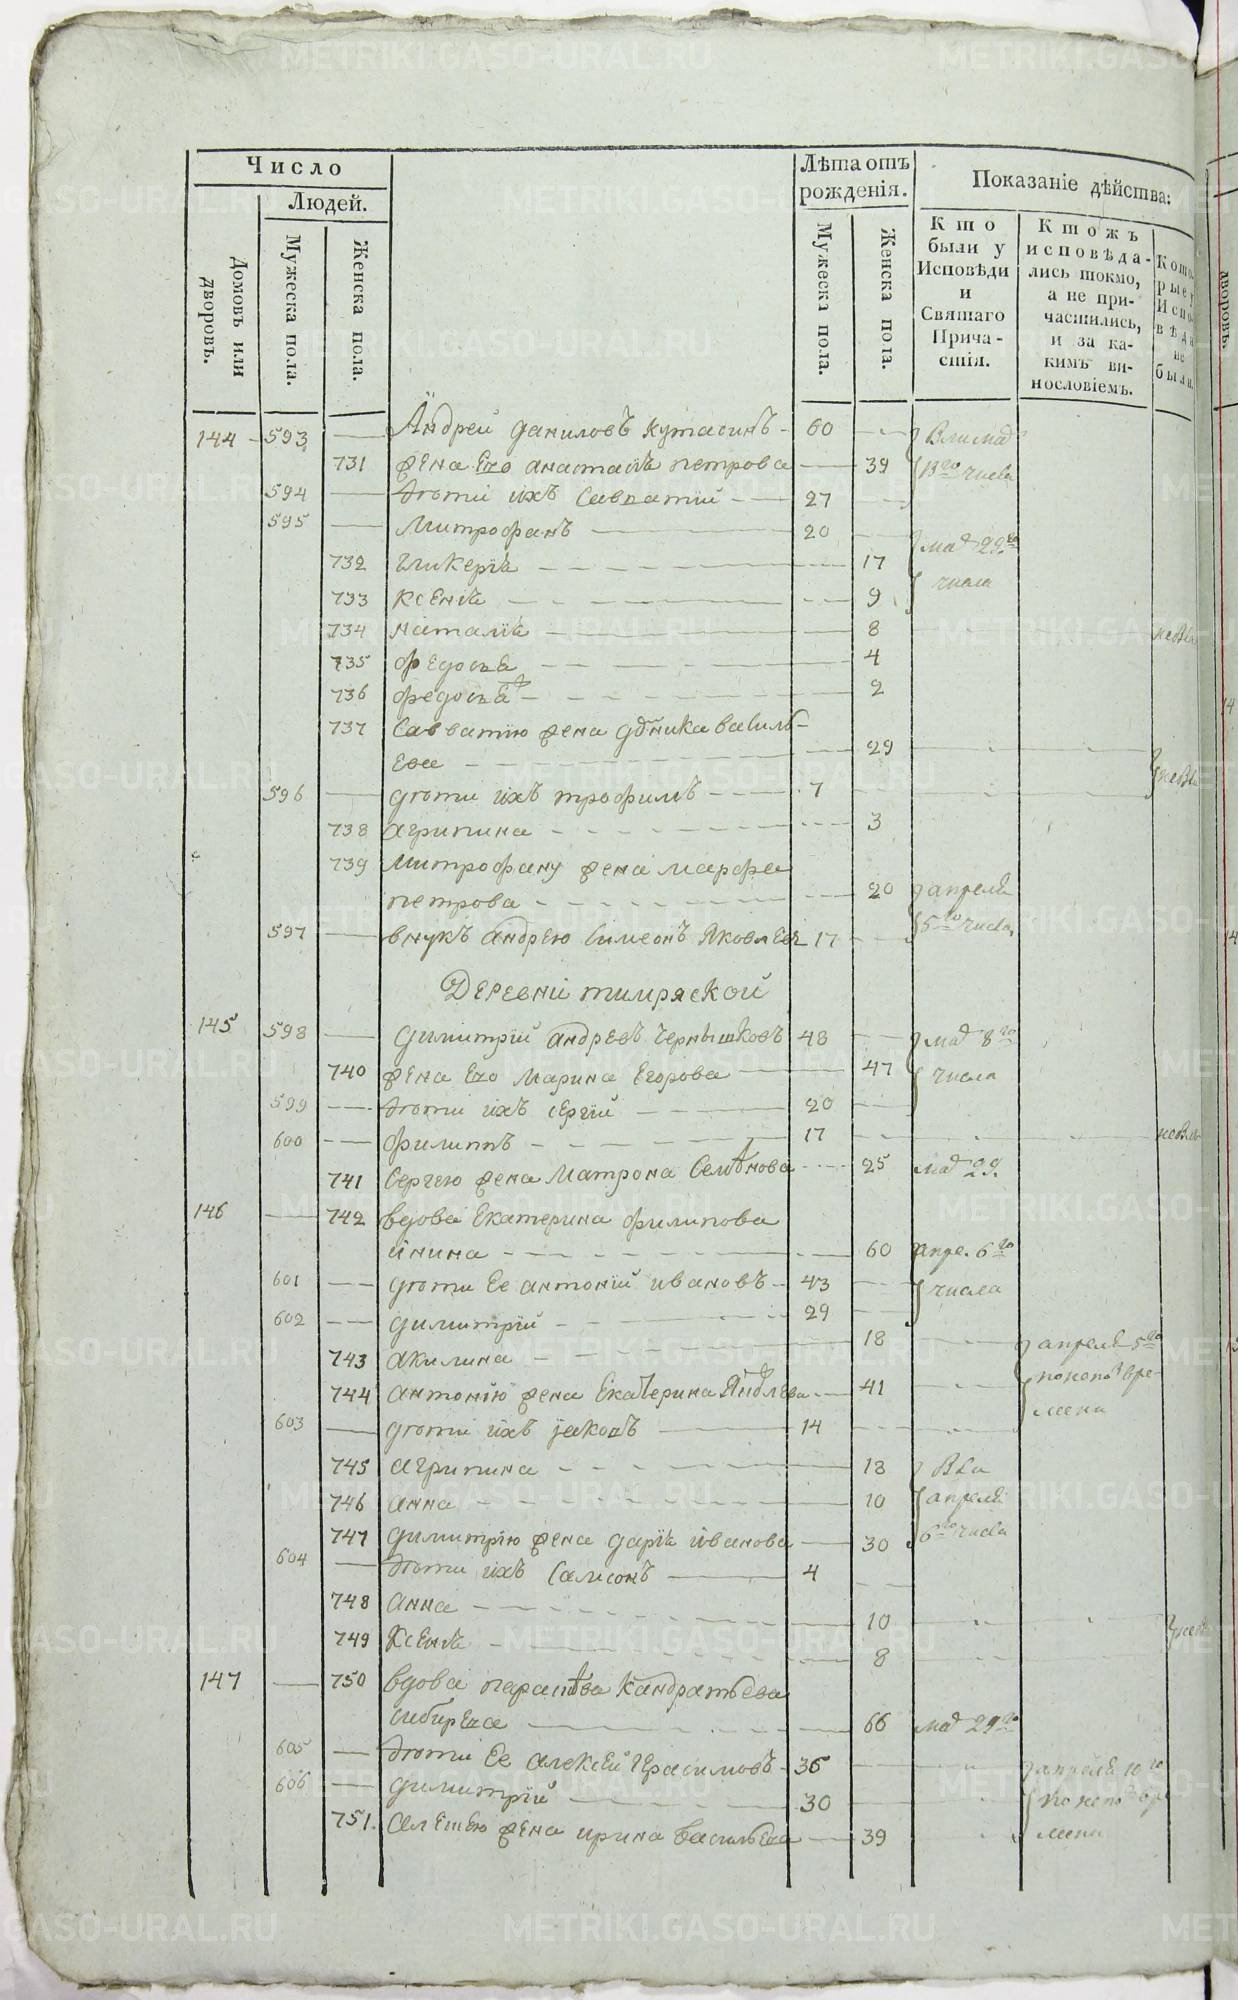 Число
Лѣта отъ рожденія.
Показаніе дѣйства:
Людей.
Домовъ или дворовъ.
Мужеска пола.
Женска пола.
Мужеска пола.
Женска пола.
Кто были у Исповѣди и Святаго Причастія.
Ктожъ исповѣдались токмо, а не причастились, и за какимъ винословіемъ.
Которые у Исповѣди не были.
144 593 Андрей даниловъ кутасинъ 60
731 жена Его анастасіѣ петрова 39 13го числа
594 дѣти ихъ Савватий 27
595 Митрофанъ 20 маѣ 29го
732 гликеріѣ 17
733 ксеніѣ 9 числа
734 наталіѣ 8
735 федосьѣ 4
736 федосьѣ 2
737 Савватию жена василь-
ева 29
596 дѣти ихъ трофимъ 7
738 агрипина 3
739 Митрофану жена марфа
петрова 20 апрелѣ
597 внукъ андрею Симеонъ Яковлев 17 5го числа
Деревни тимряской
145 598 димитрий андреевъ Чернышковъ 48 маѣ 8го
740 жена Его марина Егорова 47 числа
599 дѣти ихъ сергий 20
600 филипъ 17
741 Сергею жена матрона Семѣнова 25 маѣ 29
146 742 вдова Екатерина филипова
инина 60 апре. 6го
601 дѣти Ее антоний ивановъ 43 числа
602 димитрий 29
743 акилина 18 апрелѣ 5го
744 антонию жена Екатерина Яковлева 41
603 дѣти ихъ iаковъ 14 мени
745 агрипина 18
746 анна 10 апрелѣ
747 димитрию жена дариѣ иванова 30 6го числа
604 дѣти ихъ Самсонъ 4
748 анна 10
749 Ксеніѣ 8
147 750 вдова параскѣва Кандратьева
сибирева 66 маѣ 29го
605 дѣти Ее алексей Герасимовъ 36 апрелѣ 10го
606 димитрий 30
751. Алексею жена ирина васильева 39 мени
METRIKI.GASO-URAL.RU